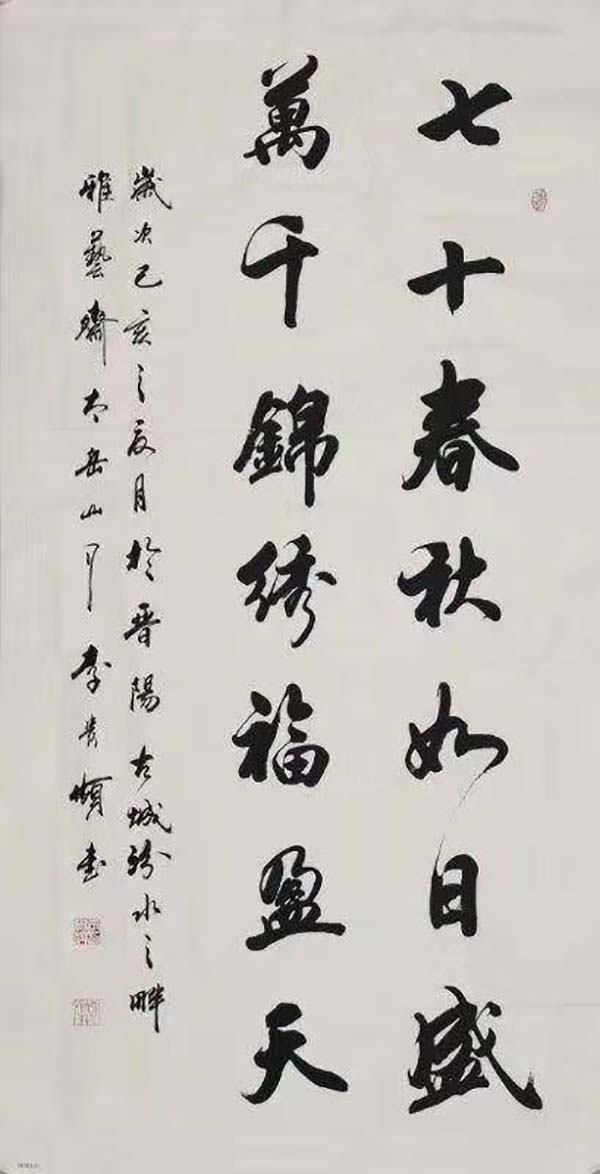 七十春秋如日盛
萬千錦绣福盈天
歲次己亥之夏月於晋陽古城汾水之畔
雅藝齋太岳山人李貴順書